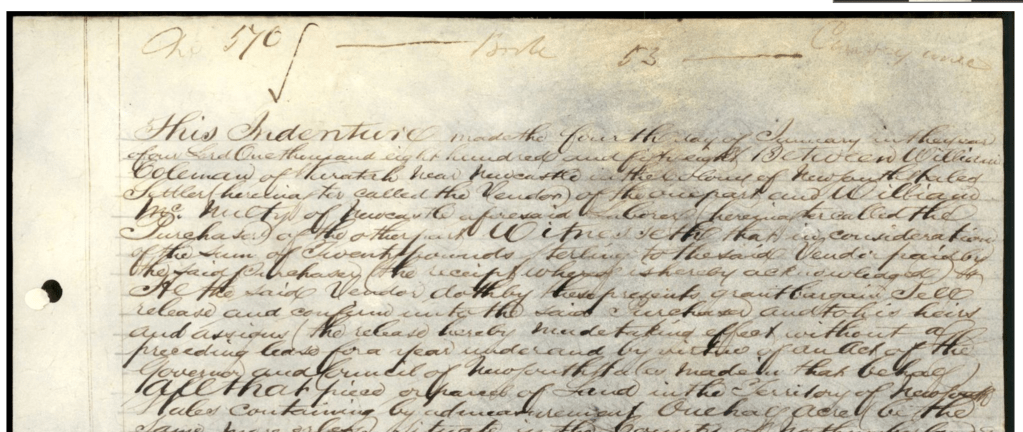 No 570 Book 53 Conveyance
This Indenture made the fourth day of January in the year
of our Lord One thousand eight hundred and fifty eight Between William
Coleman of near Newcastle in the Colony of New South Wales
Settler (hereinafter called the Vendor) of the one part and William
Mc. Nulty of Newcastle aforesaid Laborer (hereinafter called the
Purchaser) of the other part Witnesseth that in consideration
of the sum of Twenty pounds sterling to the said Vendor paid by
the said Purchaser (the receipt whereof is hereby acknowledged)
He the said Vendor doth by these presents grant bargain Sell
release and confirm unto the said Purchaser and to his heirs
and assigns (the release hereby made taking effect without a
preceding lease for a year under and by virtue of an Act of the
Governor and Council of New South Wales made in that behalf)
All that piece or parcel of Land in the Territory of New South
Wales containing by admeasurement One half acre be the
same more or less situate in the County of